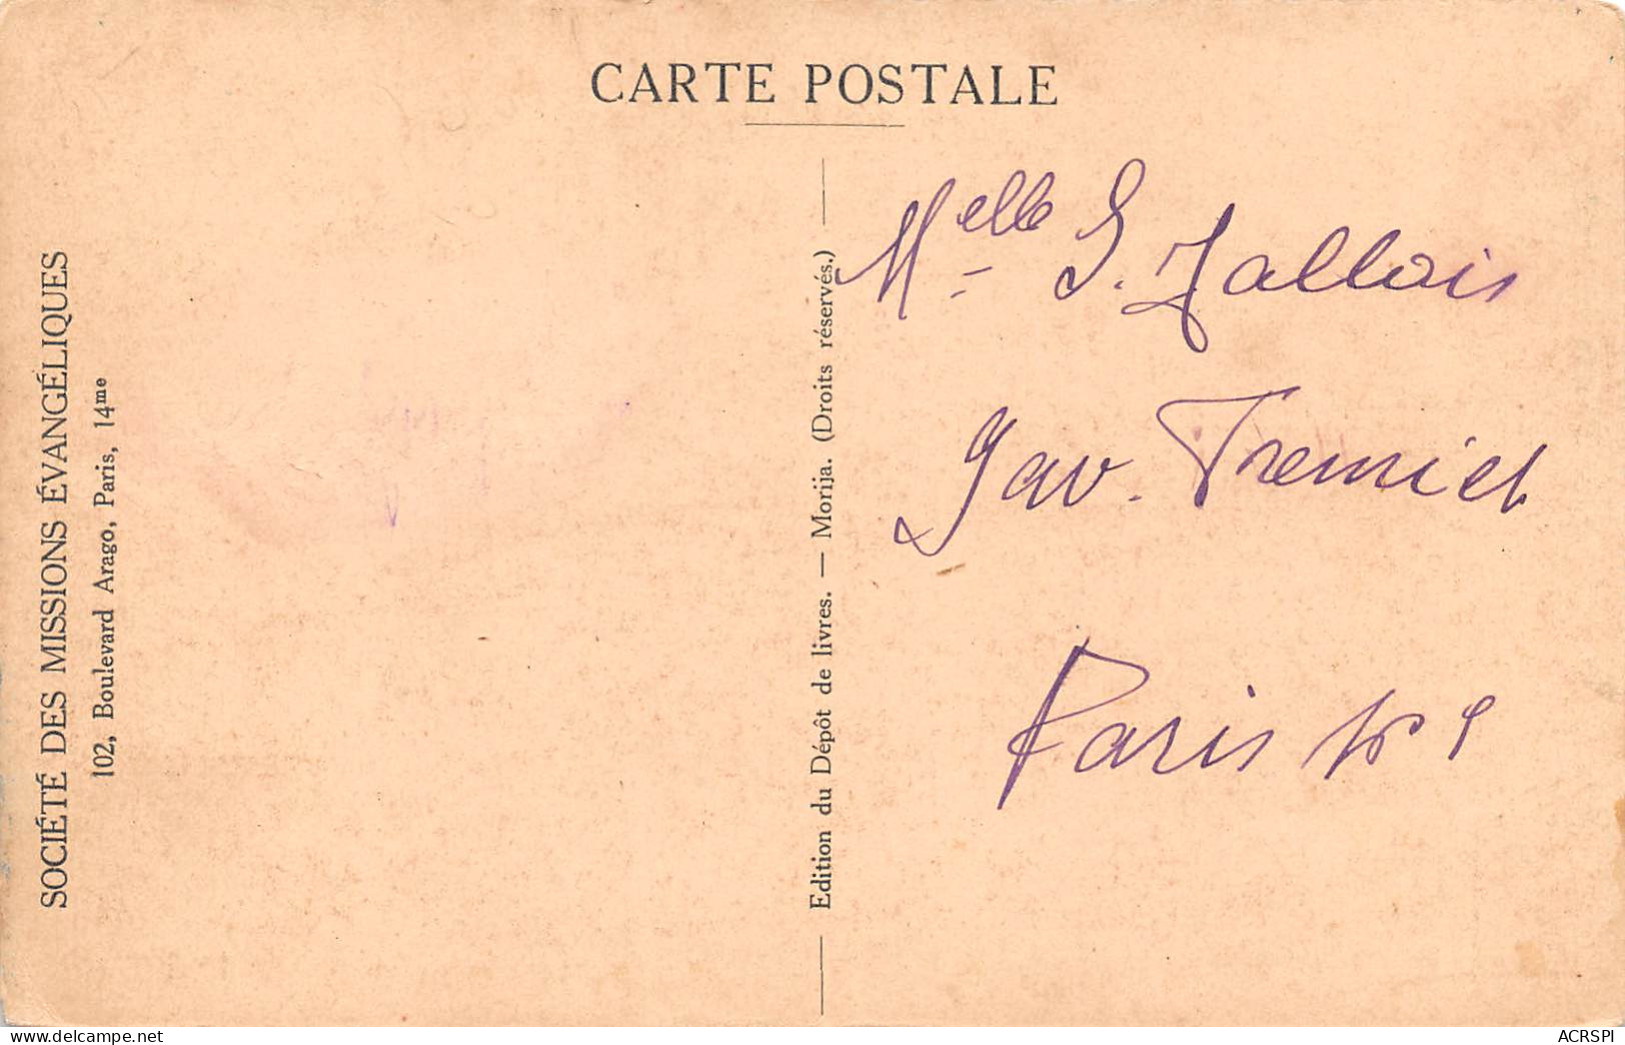 CARTE POSTALE
SOCIÉTÉ DES MISSIONS ÉVANGÉLIQUES
102, Boulevard Arago, Paris, 14me
Edition du Dépôt de livres. — Morija. (Droits réservés.)
Melle S. Jallois
Paris
www.delcampe.net
ACRSPI